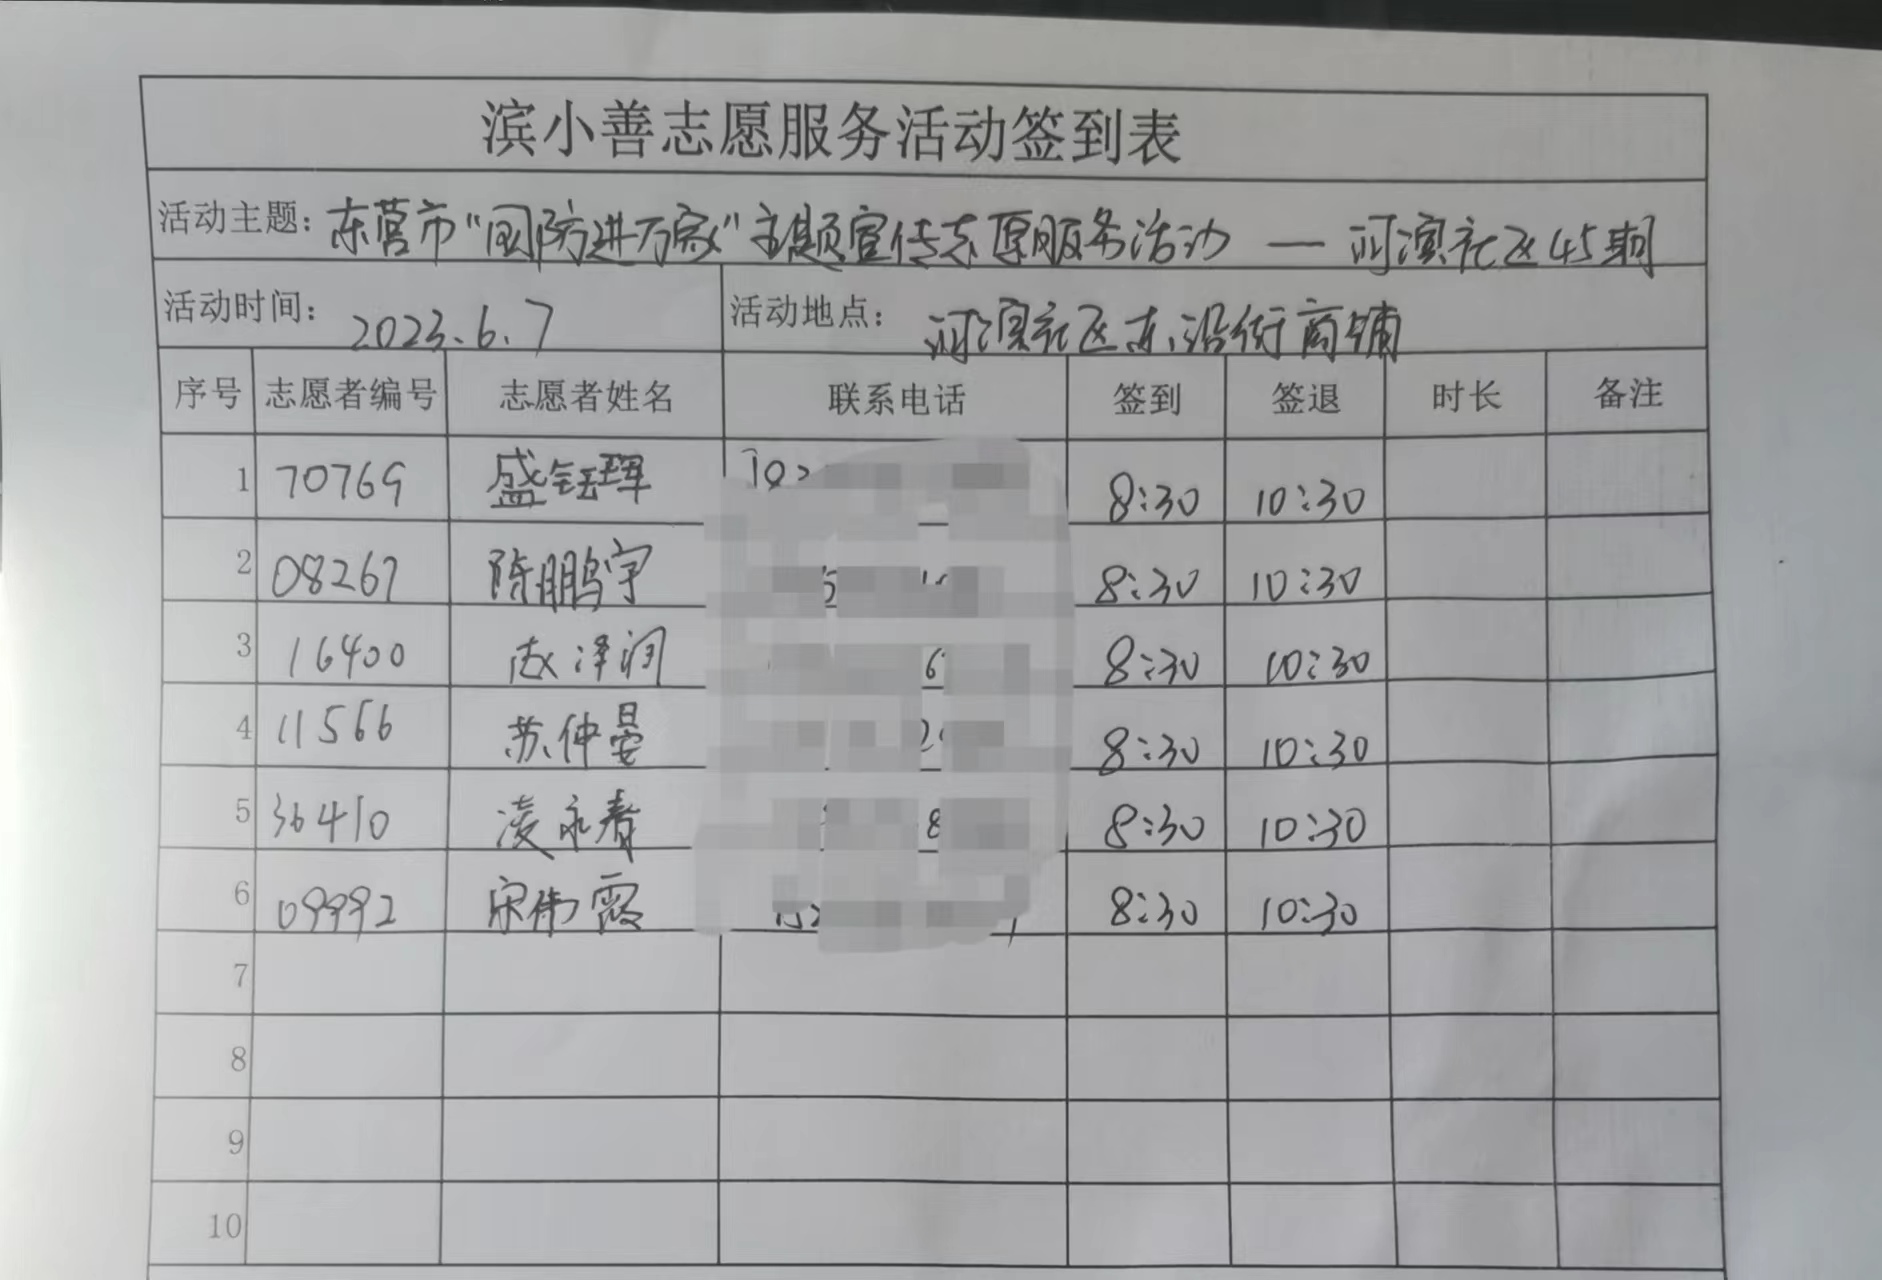 滨小善志愿服务活动签到表
活动主题：东营市“国防进万家”主题宣传志愿服务活动 — 河滨社区45期
活动时间：2023.6.7 活动地点：河滨社区东沿街商铺
序号 志愿者编号 志愿者姓名 联系电话 签到 签退 时长 备注
1 70769 盛钰珲 8:30 10:30
2 08267 陈鹏宇 8:30 10:30
3 16400 赵泽润 8:30 10:30
4 11566 苏仲晏 8:30 10:30
5 36410 凌永春 8:30 10:30
6 09992 宋伟霞 8:30 10:30
7
8
9
10